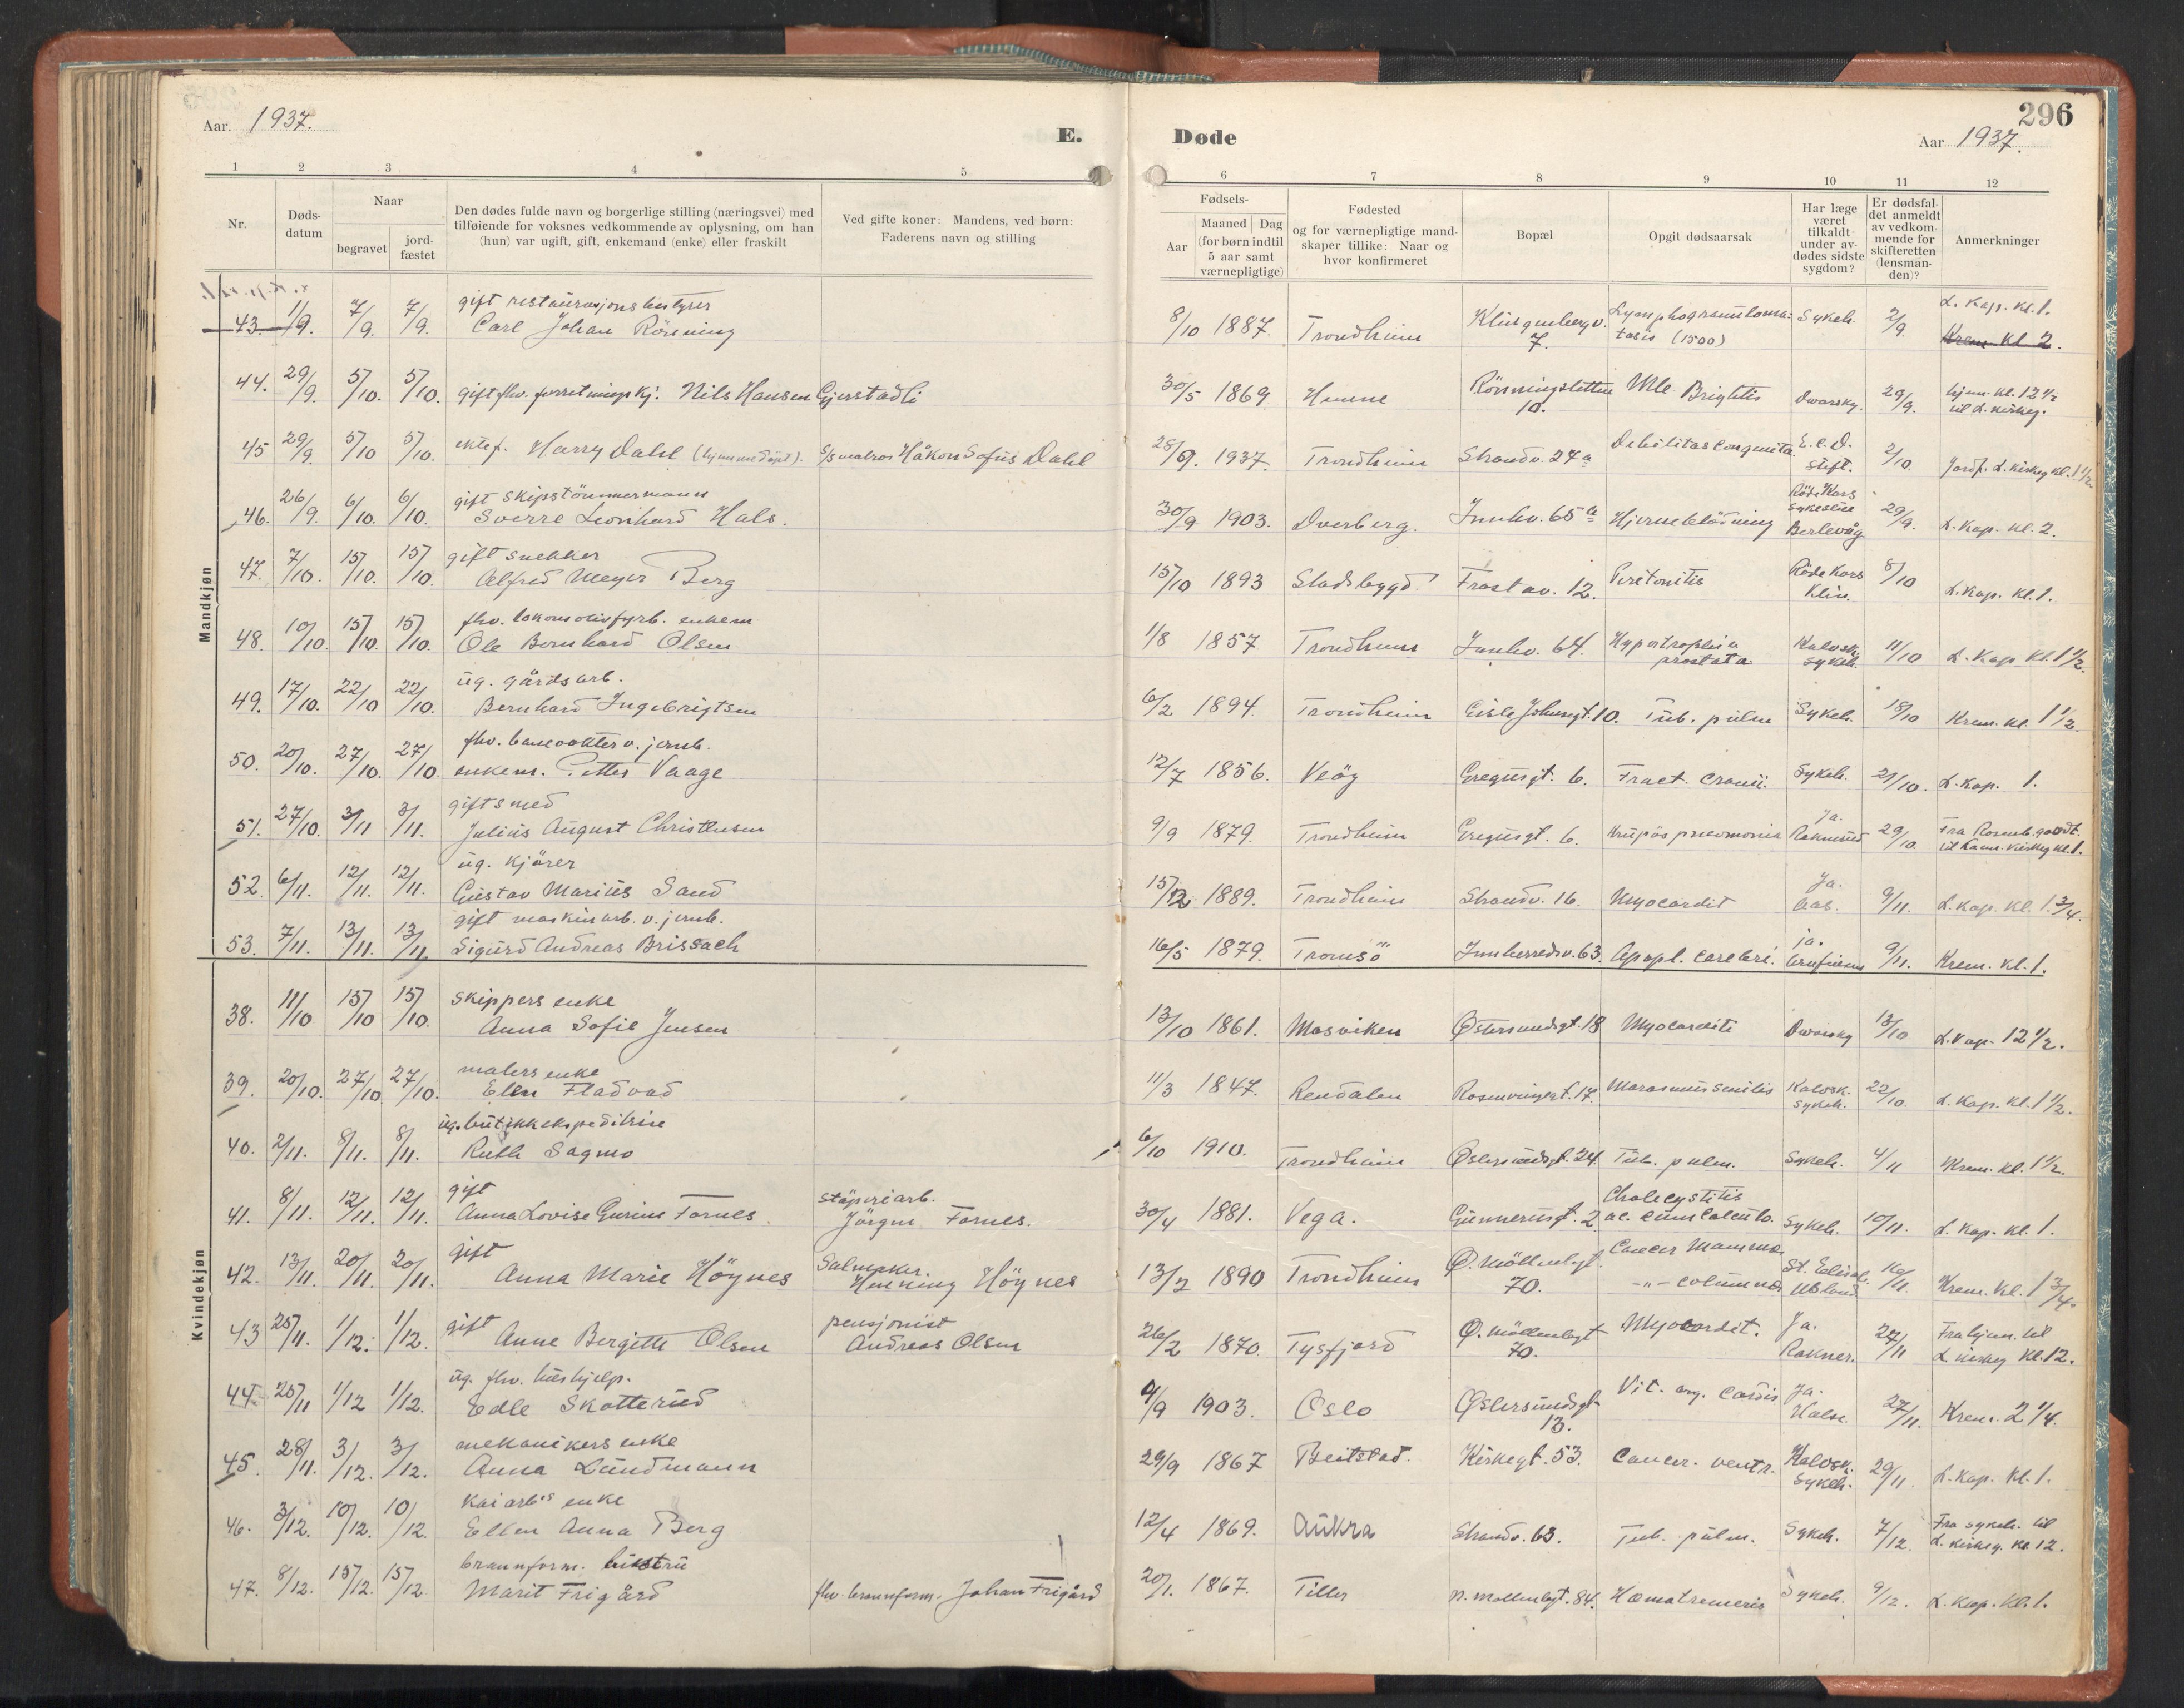 296
Aar. 1937.
E. Døde
Aar 1937.
1 2 3 4 5 6 7 8 9 10 11 12
Nr.
Døds-
datum
Naar
begravet
jord-
fæstet
Den dødes fulde navn og borgerlige stilling (næringsvei) med
tilføiende for voksnes vedkommende av oplysning, om han
(hun) var ugift, gift, enkemand (enke) eller fraskilt
Ved gifte koner: Mandens, ved børn:
Faderens navn og stilling
Fødsels-
Aar
Maaned Dag
(for børn indtil
5 aar samt
værnepligtige)
Fødested
og for værnepligtige mand-
skaper tillike: Naar og
hvor konfirmeret
Bopæl
Opgit dødsaarsak
Har læge
været
tilkaldt
under av-
dødes sidste
sygdom?
Er dødsfal-
det anmeldt
av vedkom-
mende for
skifteretten
(lensman-
den)?
Anmerkninger
Mandkjøn
gift restaurasjonsbestyrer L. Kap. kl. 1.
43. 1/9. 7/9. 7/9. Carl Johan Rönning 8/10 1887. Trondheim Klingenbergv. 7. Lymphogranuloma-tosis (1500) Sykeh. 2/9. Krem kl 2.
44. 29/9. 5/10. 5/10. gift fhv. forretningskj. Nils Hansen Gjerstadli 30/5 1869 Hemne Rönningsletten 10. Mb. Brightii Dvorsky. 29/9. hjem. kl. 12 1/2 til L. kirkeg.
45 29/9. 5/10 5/10. ektef. Harry Dahl (hjemmedöpt). S/S matros Håkon Sofus Dahl 28/9. 1937. Trondheim Strandv. 27a Debilitas congenita. E. C. D. stift. 2/10. Jordf. L. kirkeg kl. 1 1/2.
gift skipstömmermann
46. 26/9. 6/10. 6/10. Sverre Leonhard Hals. 30/9 1903. Dverberg. Innhv. 65a Hjerneblödning Röde Kors sykestue Berlevåg 29/9. L. Kap. kl. 2.
gift snekker
47. 7/10. 15/10. 15/10. Alfred Meyer Berg 15/10 1893 Stadsbygd Frostav. 12. Peritonitis Röde Kors Klin. 8/10 L. Kap. kl. 1.
fhv. lokomotivfyrb. enkem.
48. 10/10. 15/10. 15/10. Ole Bernhard Olsen 1/8 1857 Trondheim Innhv. 64. Hypertrophia prostata Kalvsk. sykeh. 11/10 L. Kap kl. 1 1/2.
ug. gårdsarb.
49. 17/10. 22/10 22/10. Bernhard Ingebrigtsen 6/2 1894. Trondheim Gisle Johnsgt. 10. Tub. pulm Sykeh. 18/10 Krem. kl. 1 1/2.
fhv. banevokter v. jernb.
50. 20/10. 27/10. 27/10 enkem. Petter Vaage 12/7 1856. Veöy Gregusgt. 6. Fract. cranii. Sykeh. 21/10. L. Kap. 1.
gift smed
51. 27/10. 3/11 3/11. Julius August Christensen 9/9 1879. Trondheim Gregusgt. 6. Krupös pneumonia Ja. Raknerud 29/10.
ug. kjörer
52. 6/11. 12/11. 12/11. Gustav Marius Sand 15/12 1889. Trondheim Strandv. 16. Myocardit Ja. Aas. 9/11. L. Kap. kl. 1 3/4.
gift maskinarb. v. jernb.
53. 7/11. 13/11. 13/11. Sigurd Andreas Brissach 16/5 1879. Tromsö Innherredsv. 63. Apopl. cerebri. ja. 9/11. Krem. kl. 1.
Kvindekjøn
skippers enke
38. 11/10 15/10 15/10. Anna Sofie Jensen 13/10 1861. Mosviken Østersundsgt. 18 Myocardit Dvorsky 13/10 L. Kap. 12 1/2.
malers enke
39. 20/10. 27/10 27/10. Ellen Fladvad 11/3 1847. Rendalen Rosenvingesgt. 17. Marasmus senilis Kalvsk. sykeh. 22/10. L. Kap. kl. 1 1/2.
ug. butikkekspeditrise
40. 2/11. 8/11. 8/11. Ruth Sagmo 6/10 1910. Trondheim Østersundsgt. 24. Tub. pulm. Sykeh. 4/11 Krem. kl. 1 1/2.
gift
41. 8/11. 12/11. 12/11. Anna Lovise Gurine Fornes. stöperiarb. Jörgen Fornes. 30/4 1881. Vega. Gunnerusgt. 2 Cholecystitis ac. cum calculo. Sykeh. 10/11. L. Kap. kl. 1.
gift
42. 13/11. 20/11. 20/11. Anna Marie Höynes Salmaker. Henning Höynes 13/2 1890 Trondheim Ø. Möllenbgt. 70. Cancer Mamma -"- columna St. Elisab. Ubland 16/11. Krem. kl. 1 3/4.
gift
43 25/11. 1/12. 1/12. Anne Bergitte Olsen pensjonist Andreas Olsen 26/2 1870. Tysfjord Ø. Möllenbgt 70. Myocardit. Ja. Rakner. 27/11 Fra hjem. til L. kirkeg kl. 12.
ug. fhv. hushjelp.
44. 25/11 1/12 1/12. Edle Skotterud 4/9 1903. Oslo Østersundsgt 13. Vit. org. cordis Ja. Halse. 27/11. Krem. 2 1/4.
mekanikers enke
45. 28/11. 3/12. 3/12. Anna Lundmann 29/9 1867 Beitstad. Kirkegt. 53. Cancer. ventr. Kalvsk. sykeh. 29/11. L. Kap. kl. 1.
kaiarb.s enke
46. 3/12. 10/12. 10/12. Ellen Anna Berg 12/4 1869. Aukra Strandv. 63. Tub. pulm. Sykeh. 7/12. Fra sykeh. til L. kirkeg. kl 12.
brannform. hustru
47. 8/12. 15/12. 15/12. Marit Frigård fhv. brannform. Johan Frigård 20/1. 1867. Tiller N. Möllenbgt. 84. Sykeh. 9/12. L. Kap. kl. 1.